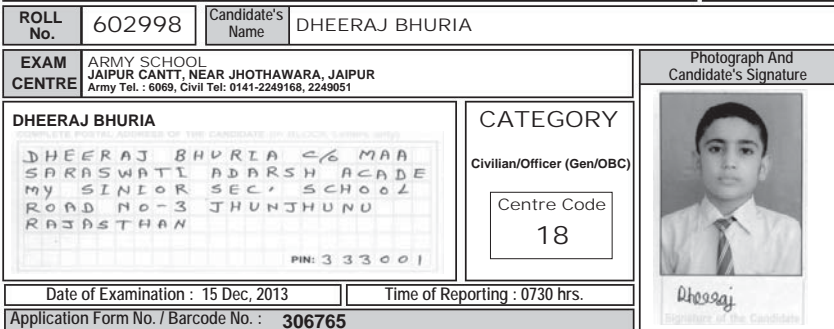 ROLL No. 602998 Candidate's Name DHEERAJ BHURIA
EXAM CENTRE
ARMY SCHOOL
JAIPUR CANTT, NEAR JHOTHAWARA, JAIPUR
Army Tel. : 6069, Civil Tel: 0141-2249168, 2249051
Photograph And
Candidate's Signature
DHEERAJ BHURIA
COMPLETE POSTAL ADDRESS OF THE CANDIDATE
DHEERAJ BHURIA C/o MAA
SARASWATI ADARSH ACADE
MY SINIOR SEC. SCHOOL
ROAD NO-3 JHUNJHUNU
RAJASTHAN
PIN: 333001
CATEGORY
Civilian/Officer (Gen/OBC)
Centre Code
18
Dheeraj
Signature of the Candidate
Date of Examination : 15 Dec, 2013
Time of Reporting : 0730 hrs.
Application Form No. / Barcode No. : 306765